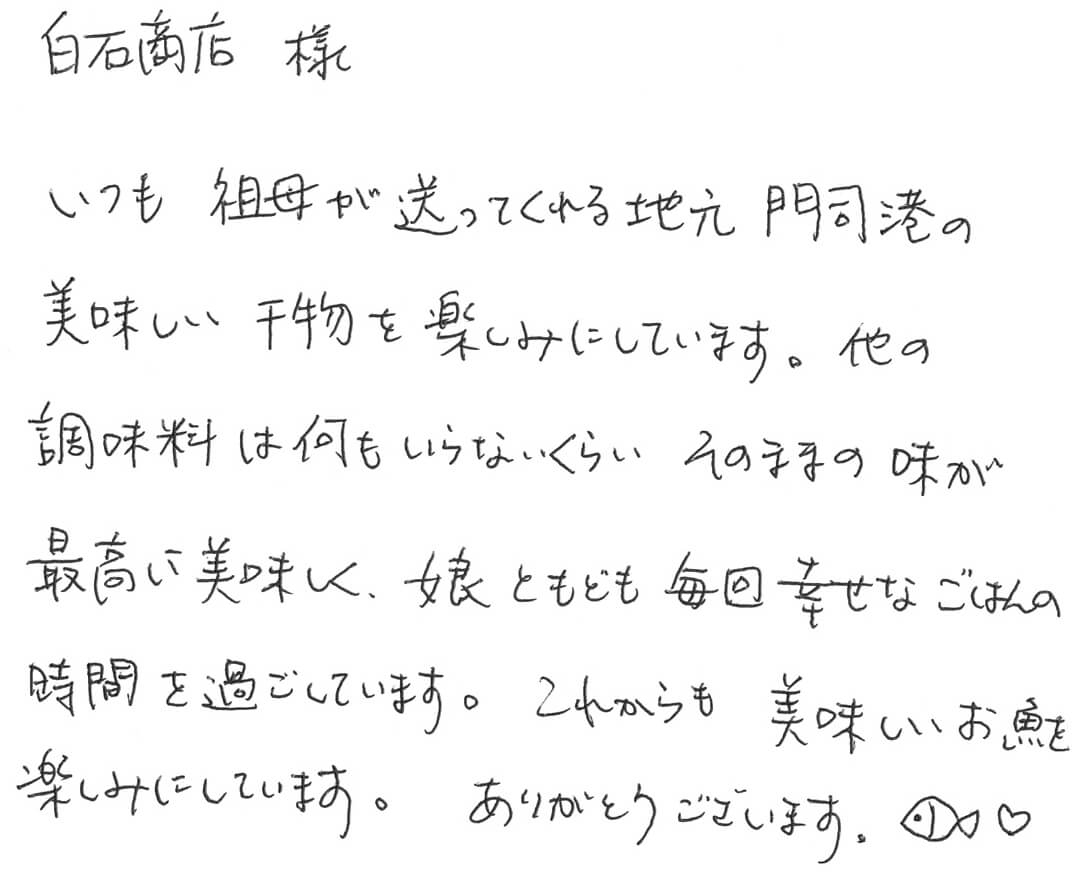 白石商店 様
いつも 祖母が送ってくれる地元 門司港の
美味しい 干物を楽しみにしています。他の
調味料は何もいらないくらい そのままの味が
最高に美味しく、娘ともども毎回幸せなごはんの
時間を過ごしています。これからも 美味しいお魚を
楽しみにしています。 ありがとうございます。♡